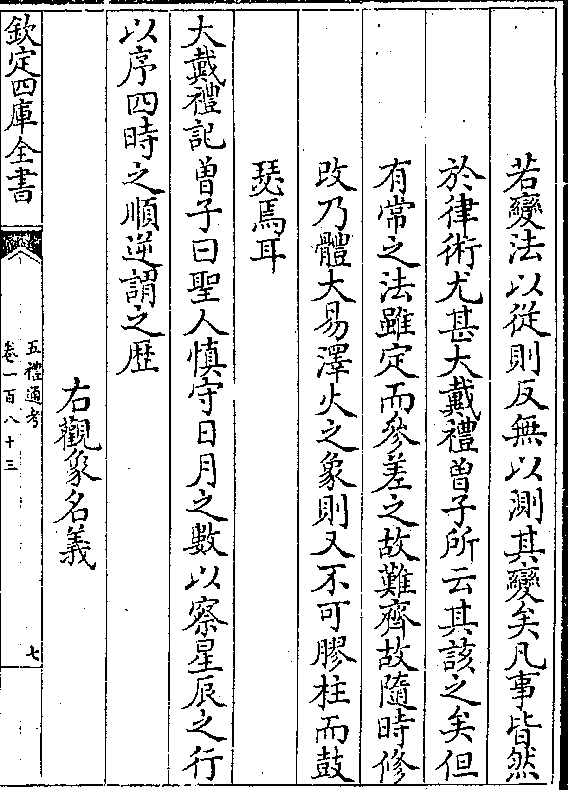 若變法以從則反無以測其變矣凡事皆然
於律術尤甚大戴禮曽子所云其該之矣但
有常之法雖定而參差之故難齊故隨時修
改乃體大易澤火之象則又不可膠柱而鼓
瑟焉耳
大戴禮記曽子曰聖人慎守日月之數以察星辰之行
以序四時之順逆謂之歴
右觀象名義
欽定四庫全書
五禮通考
卷一百八十三
七